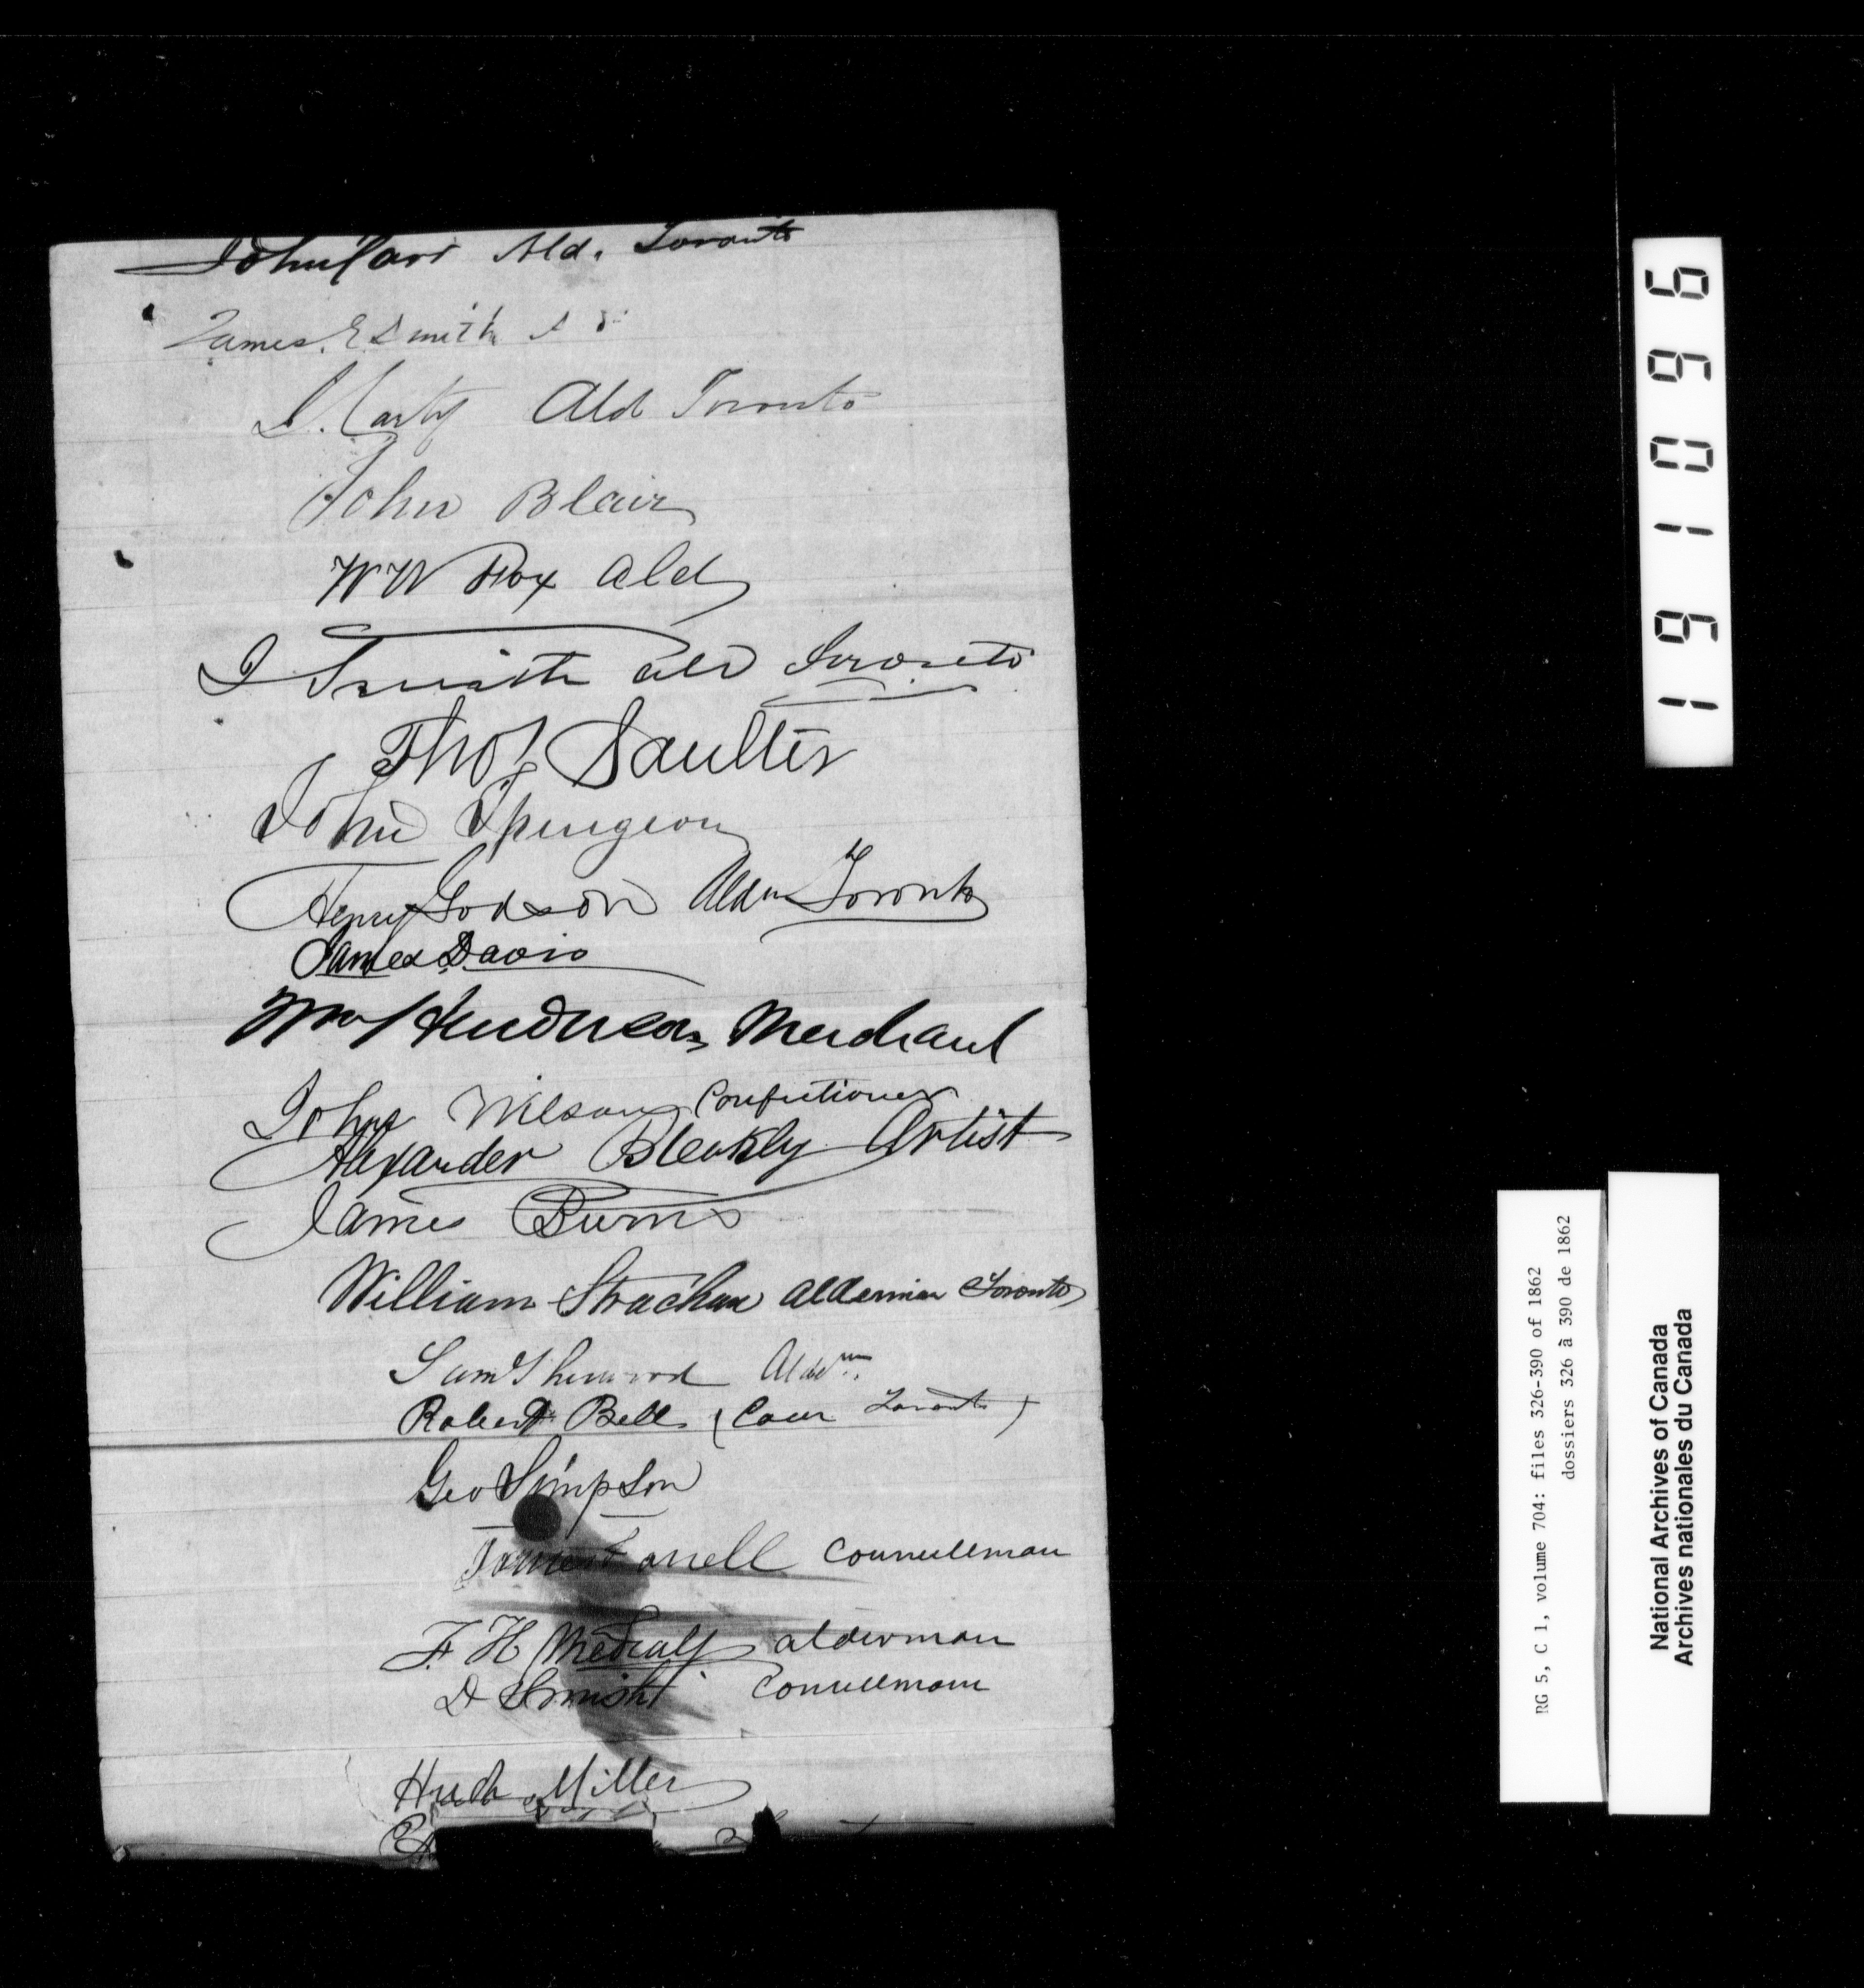 John Carr Ald. Toronto
James. E Smith
Carty Ald Toronto
John Blair
W W Fox Ald
J Smith Ald Toronto
Thos Saulter
John Spurgeon
Henry Godson Aldn Toronto
James Davis
Wm Henderson Merchant
John Wilson Confectioner
Alexander Bleakly Artist
James Burns
William Strachan Alderman Toronto
Sam Sherwood Aldmn.
Robert Bell (Coun Toronto)
Geo Simpson
James Farrell Councilman
F. H Medcalf alderman
D Councilman
Hugh Miller
1961096
RG 5, C 1, volume 704: files 326-390 of 1862
dossiers 326 à 390 de 1862
National Archives of Canada
Archives nationales du Canada